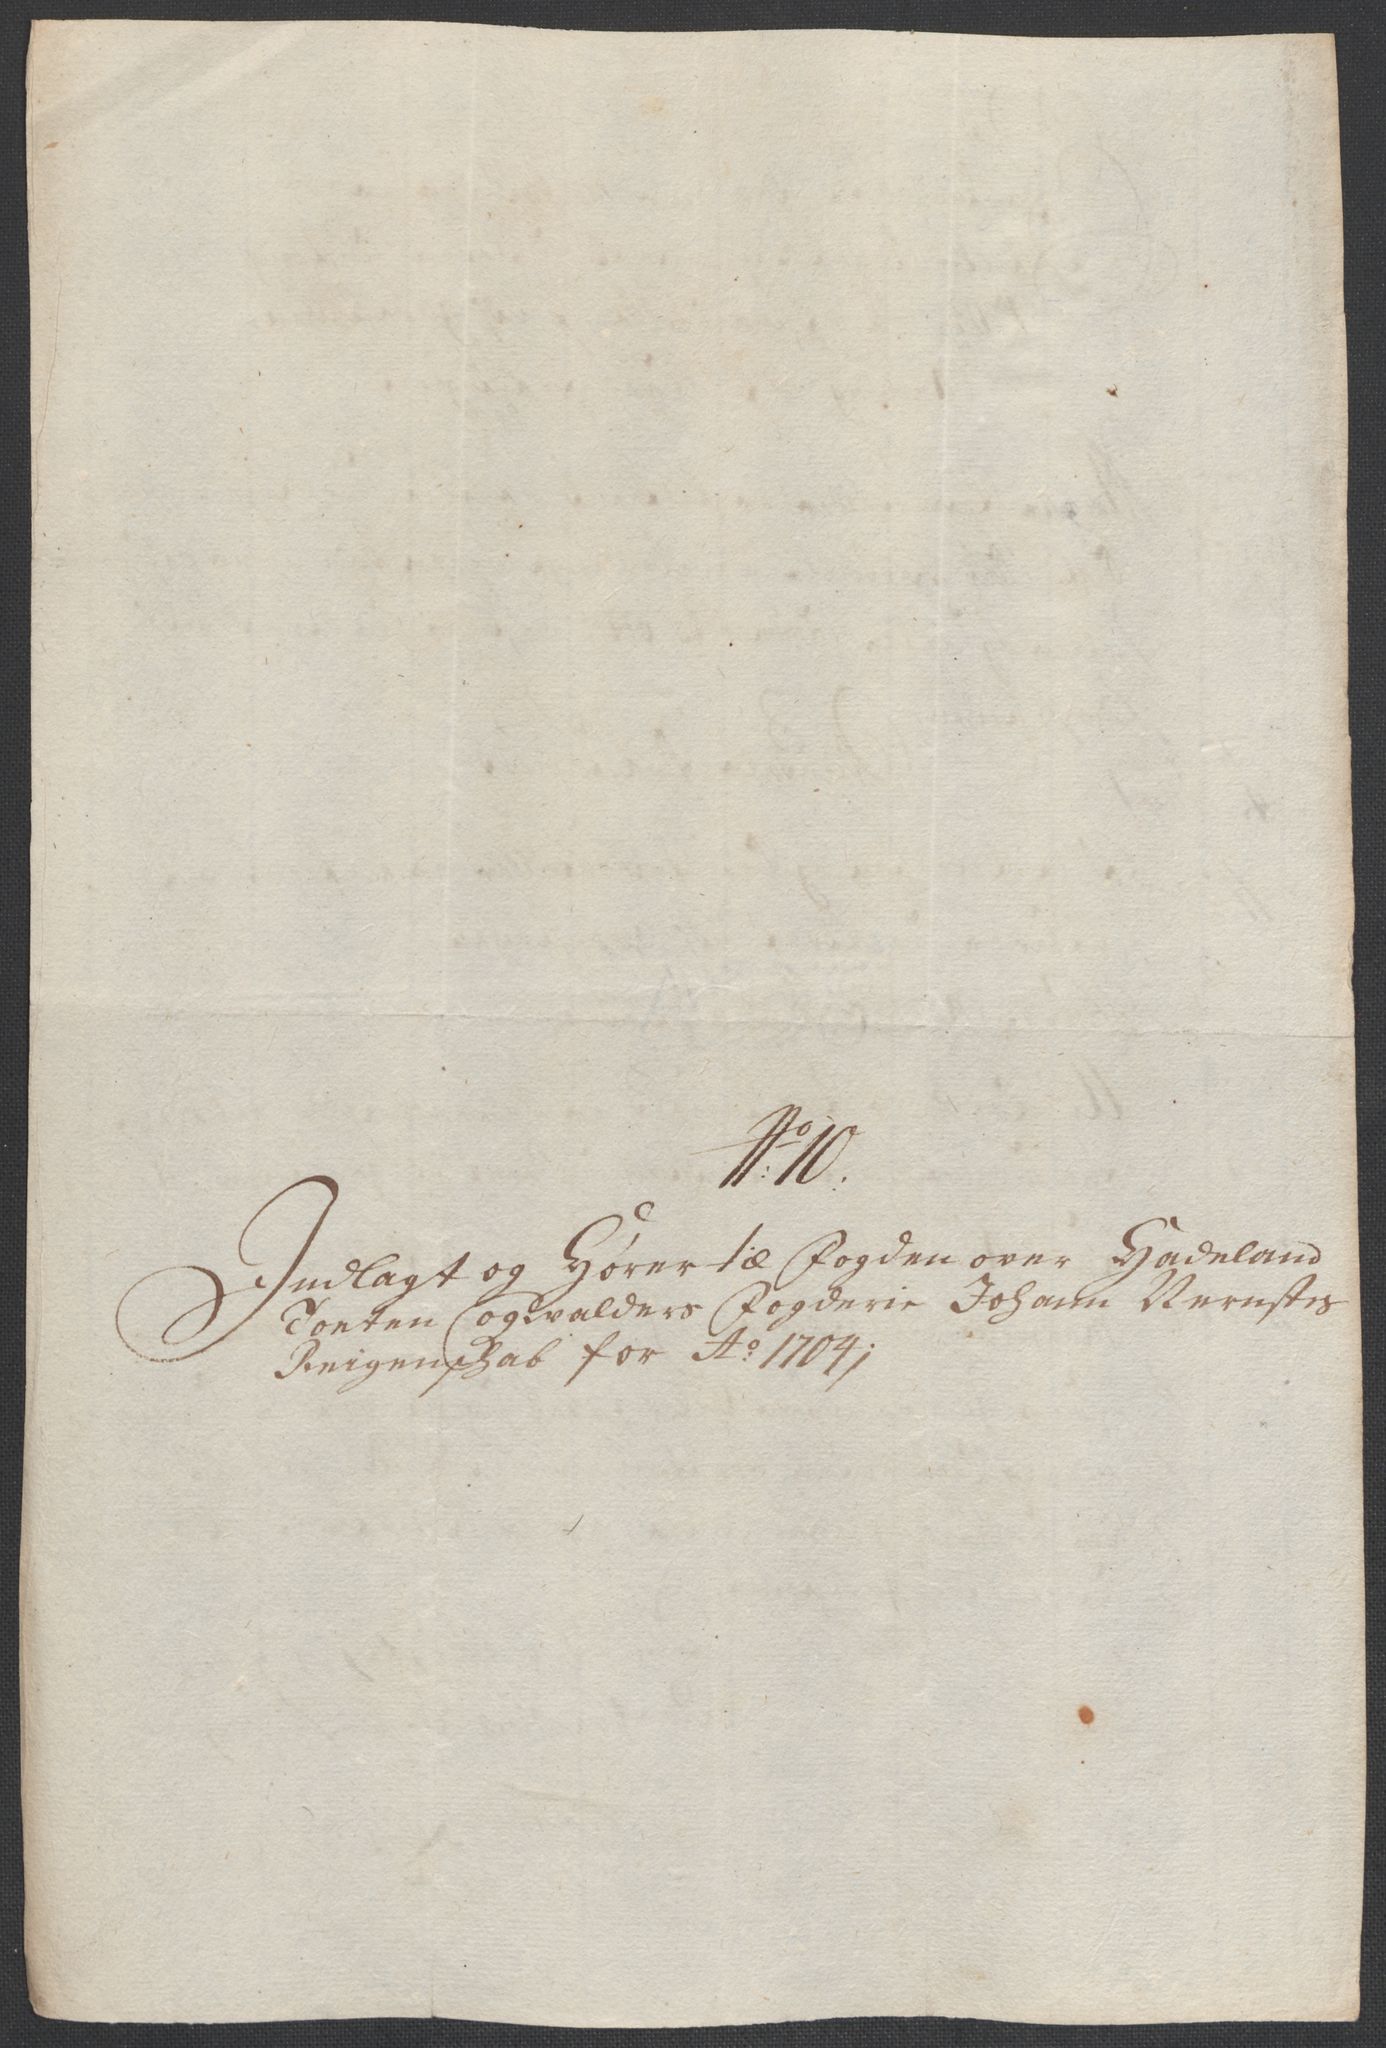 No: 10.
Indlagt og Hører til Fogden over Hadeland
Toeten og Valders Fogderie Johann Vernstes
Reigenskab for Ao: 1704;